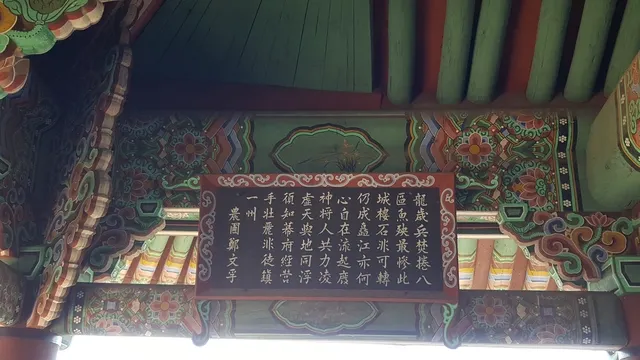 龍歲兵焚捲八
區魚殃最慘此
城樓石非可轉
仍成矗江亦何
心自在流起廢
神將人共力凌
虛天與地同浮
須知幕府經營
手壯麗非徒鎭
一州
農圃鄭文孚